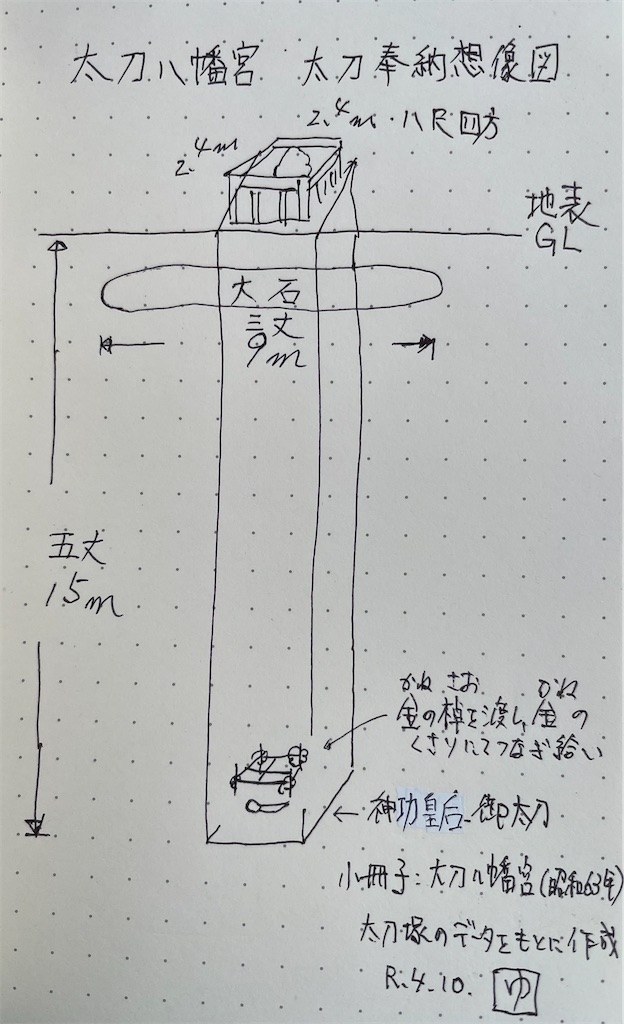 太刀八幡宮 太刀奉納想像図
2.4m・八尺四方
2.4m
地表
GL
大石
三丈
9m
五丈
15m
かね さお かね
金の棹を渡し金の
くさりにてつなぎ給い
神功皇后御太刀
小冊子:太刀八幡宮(昭和63年)
太刀塚のデータをもとに作成
R.4.10. ゆ